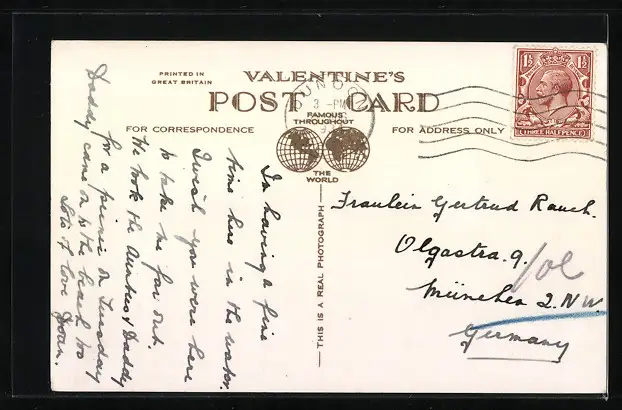 PRINTED IN
GREAT BRITAIN
VALENTINE'S
POST CARD
FOR CORRESPONDENCE
FAMOUS
THROUGHOUT
THE
WORLD
FOR ADDRESS ONLY
THIS IS A REAL PHOTOGRAPH
DUNOON
3 -PM
1½ 1½
THREE HALFPENCE
I'm having a fine
time here in the water.
I wish you were here
to take me far out.
We took the Aunties & Daddy
for a picnic on Tuesday
Daddy came to the beach too
Lots of love Joan.
Fraulein Gertrud Rauch.
Olgastra. 9.
München 2. N W.
Germany